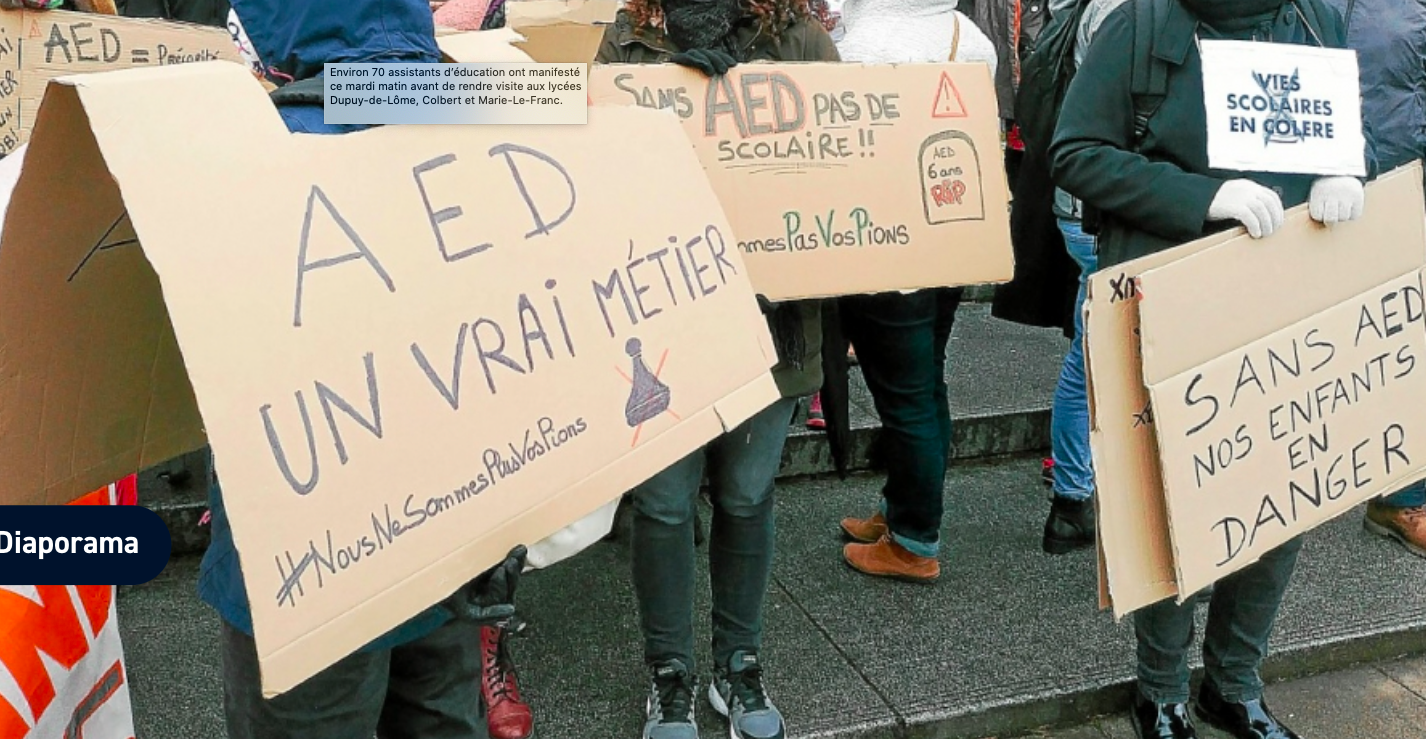 AED = Précarité
Environ 70 assistants d'éducation ont manifesté
ce mardi matin avant de rendre visite aux lycées
Dupuy-de-Lôme, Colbert et Marie-Le-Franc.
AED
UN VRAI MÉTIER
#NousNeSommesPlusVosPions
SANS AED PAS DE
SCOLAIRE !!
AED
6 ans
RIP
mmesPasVosPions
VIES
SCOLAIRES
EN COLERE
SANS AED
NOS ENFANTS
EN
DANGER
Diaporama